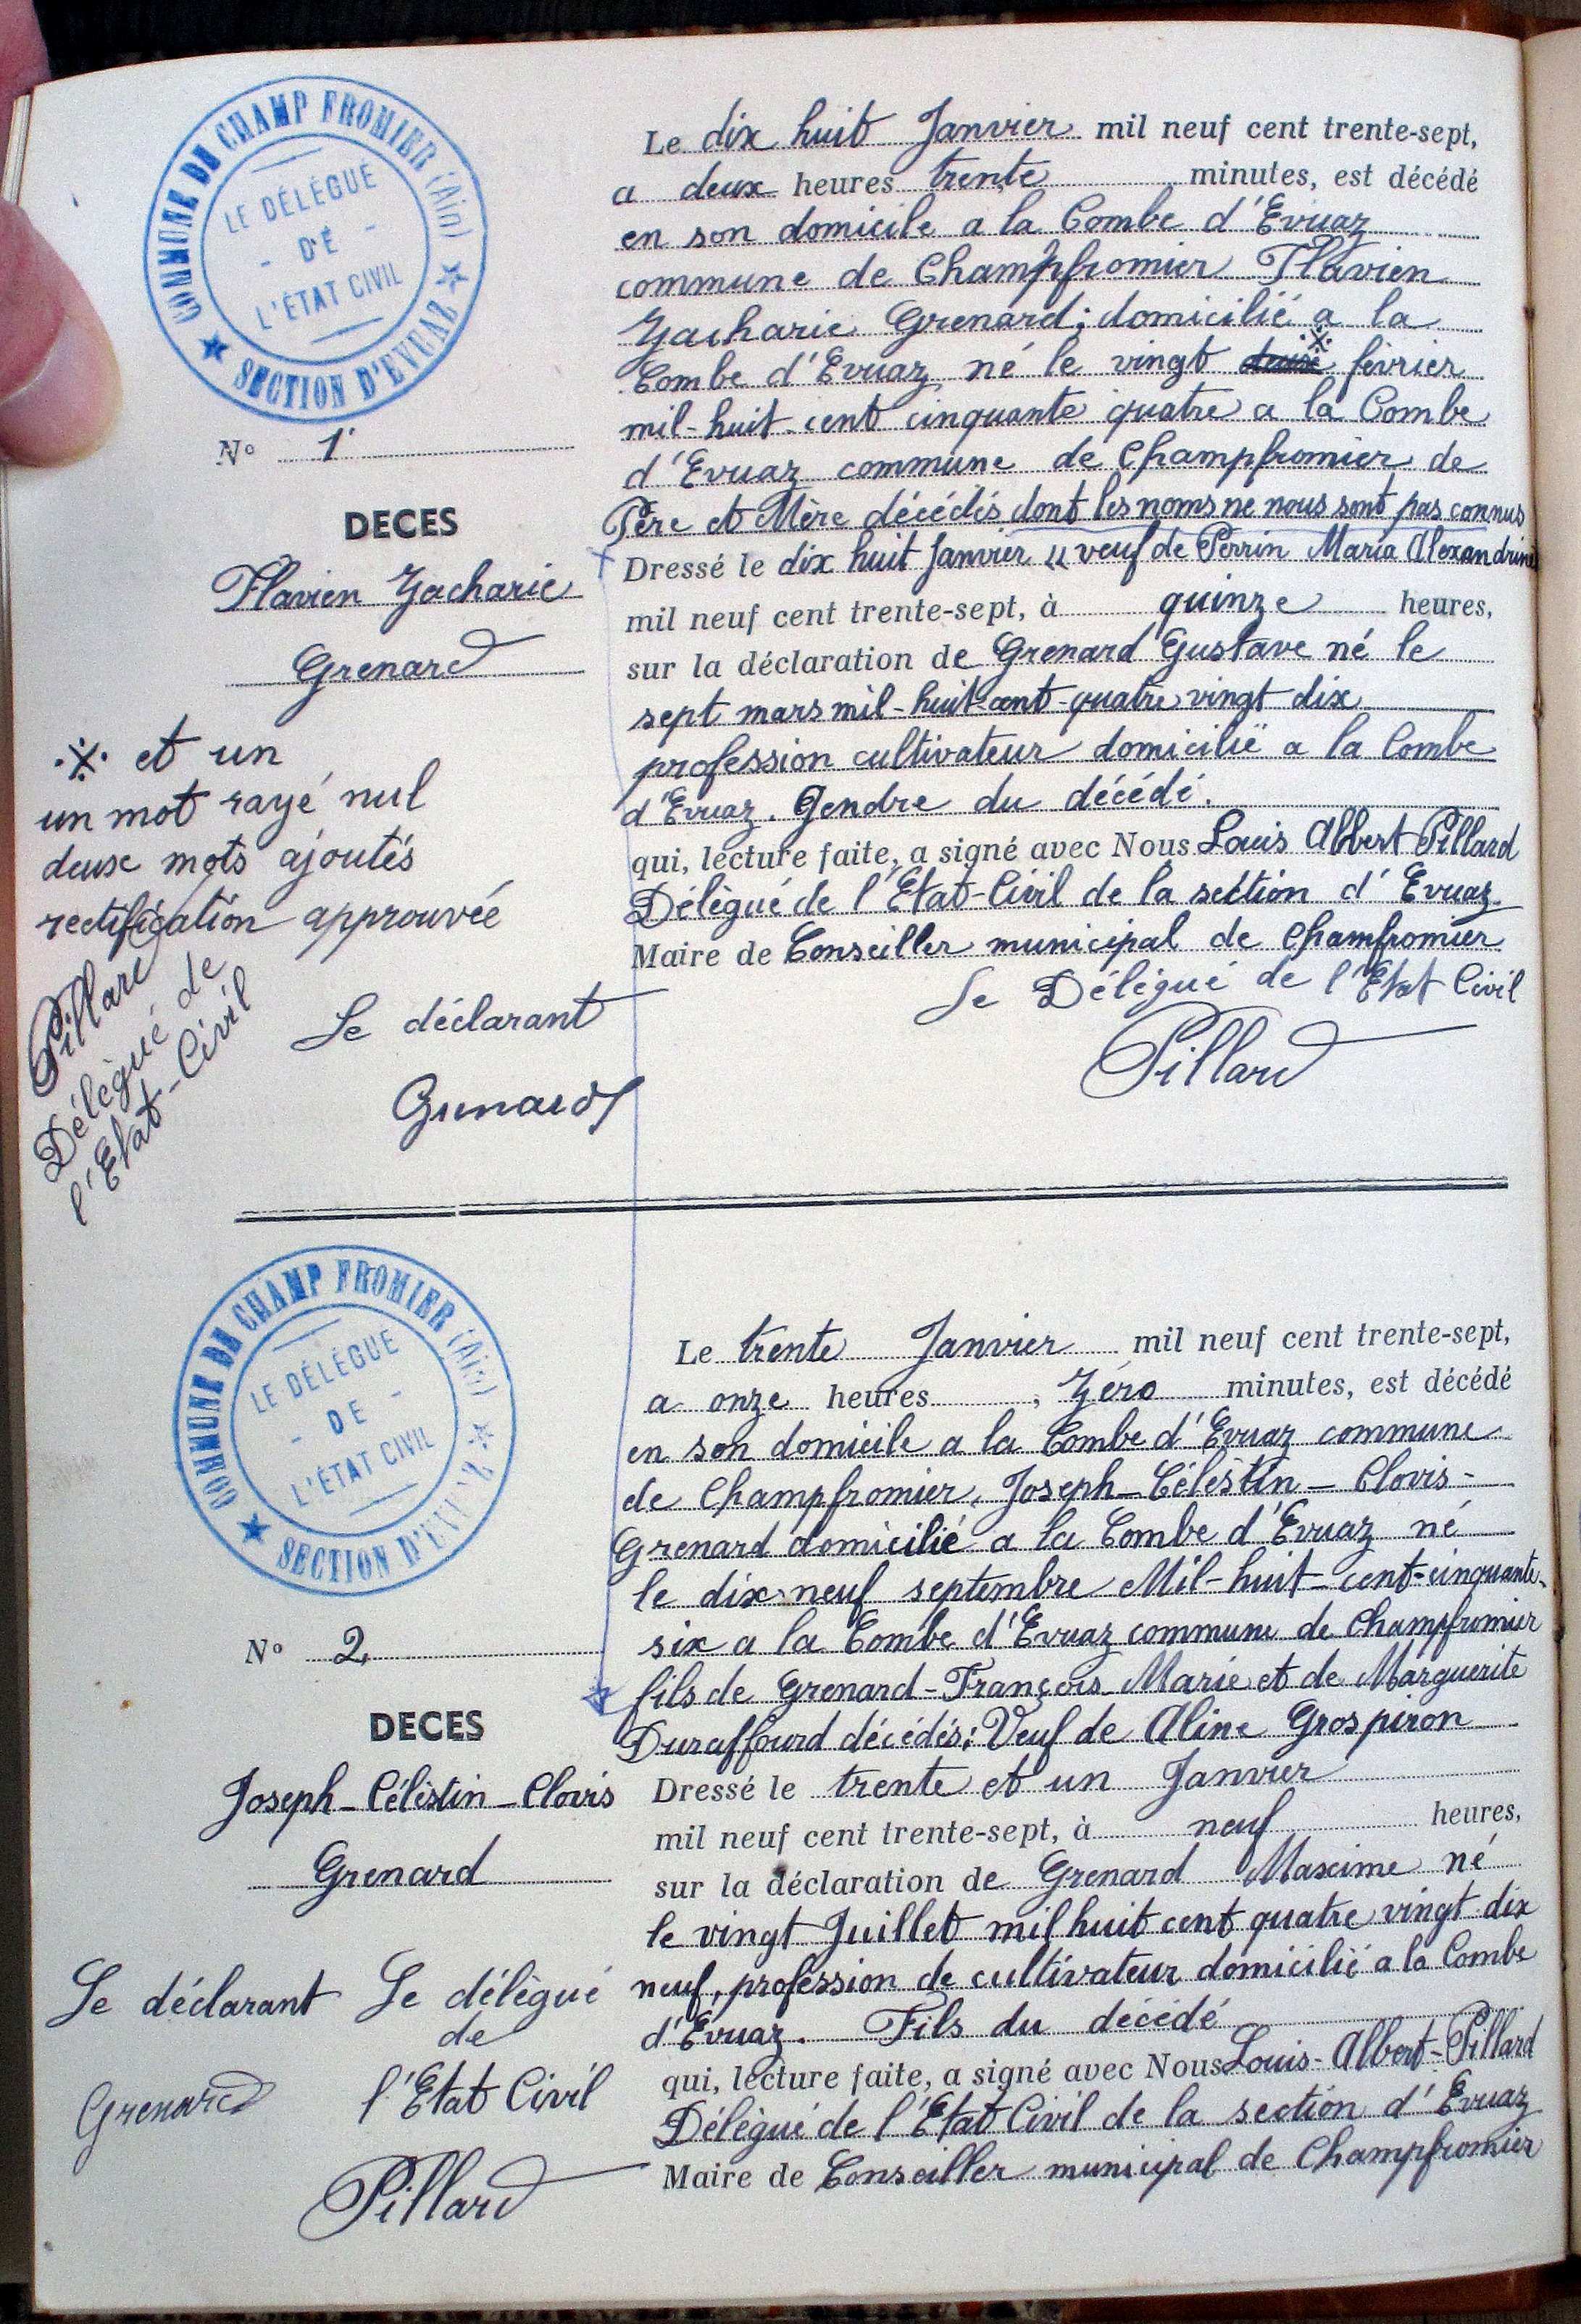 COMMUNE DE CHAMP FROMIER (Ain)
LE DÉLÉGUÉ
- DE -
L'ÉTAT CIVIL
★ SECTION D'EVUAZ ★
N° 1
DECES
Flavien Zacharie
Grenard
※ et un
un mot rayé nul
deux mots ajoutés
rectification approuvée
Pillard
Délégué de
l'Etat-Civil
Le dix huit Janvier mil neuf cent trente-sept,
a deux heures trente minutes, est décédé
en son domicile a la Combe d'Evuaz
commune de Champfromier Flavien
Zacharie Grenard; domicilié a la
Combe d'Evuaz né le vingt ※ février
mil-huit-cent cinquante quatre a la Combe
d'Evuaz commune de Champfromier de
Père et Mère décédés dont les noms ne nous sont pas connus
Dressé le dix huit Janvier " veuf de Perrin Maria Alexandrine
mil neuf cent trente-sept, à quinze heures,
sur la déclaration de Grenard Gustave né le
sept mars mil-huit-cent-quatre vingt dix
profession cultivateur domicilié a la Combe
d'Evuaz. Gendre du décédé.
qui, lecture faite, a signé avec Nous Louis Albert Pillard
Délégué de l'Etat-Civil de la section d'Evuaz
Maire de Conseiller municipal de Champfromier
Le Délégué de l'Etat Civil
Pillard
Le déclarant
Grenard
COMMUNE DE CHAMP FROMIER (Ain)
LE DÉLÉGUÉ
- DE -
L'ÉTAT CIVIL
★ SECTION D'EVUAZ ★
N° 2
DECES
Joseph-Célestin-Clovis
Grenard
Le trente Janvier mil neuf cent trente-sept,
a onze heures, Zéro minutes, est décédé
en son domicile a la Combe d'Evuaz commune
de Champfromier, Joseph-Célestin-Clovis-
Grenard domicilié a la Combe d'Evuaz né
le dix-neuf septembre Mil-huit-cent-cinquante-
six a la Combe d'Evuaz commune de Champfromier
fils de Grenard-François Marie et de Marguerite
Duraffourd décédés: Veuf de Aline Grospiron
Dressé le trente et un Janvier
mil neuf cent trente-sept, à neuf heures,
sur la déclaration de Grenard Maxime né
le vingt Juillet mil huit cent quatre vingt dix
neuf, profession de cultivateur domicilié a la Combe
d'Evuaz. Fils du décédé
qui, lecture faite, a signé avec Nous Louis-Albert-Pillard
Délégué de l'Etat Civil de la section d'Evuaz
Maire de Conseiller municipal de Champfromier
Le déclarant
Grenard
Le délégué
de
l'Etat Civil
Pillard